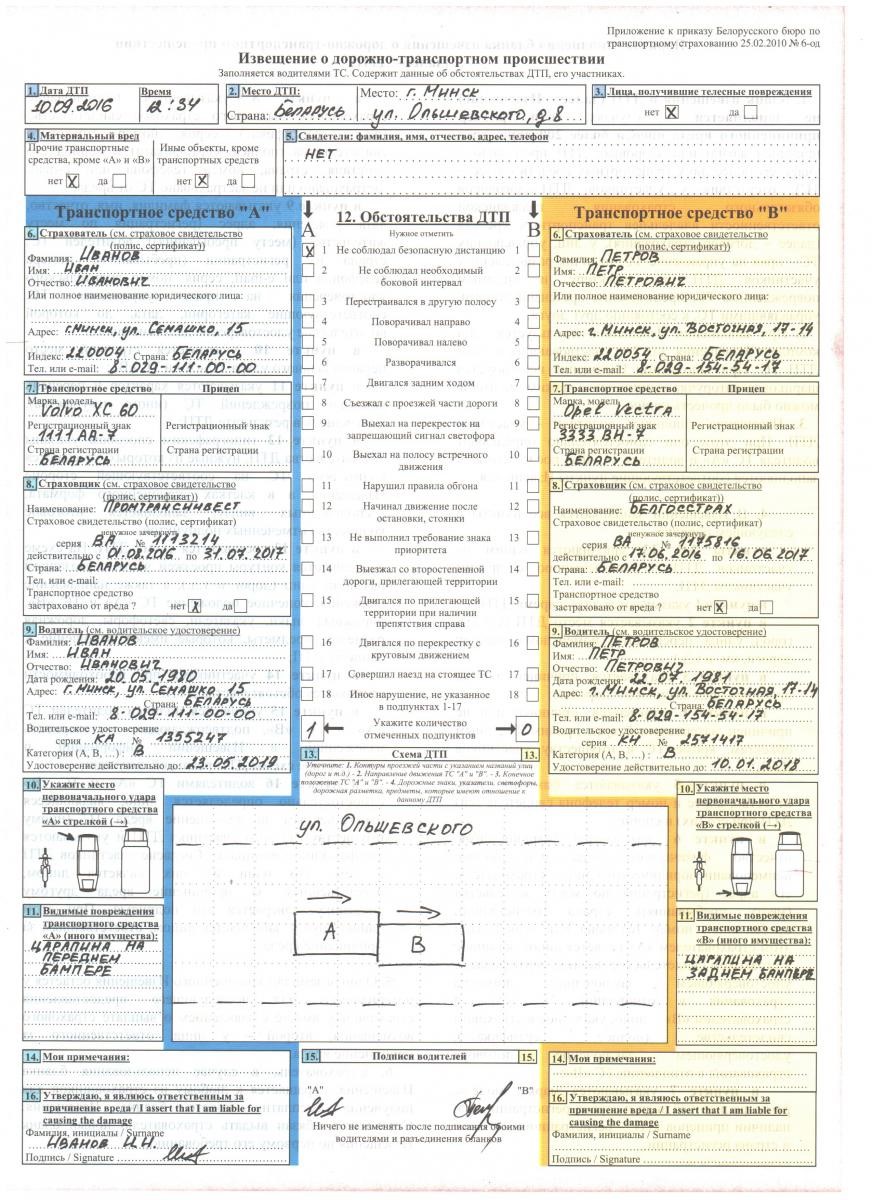 Приложение к приказу Белорусского бюро по
транспортному страхованию 25.02.2010 № 6-од
Извещение о дорожно-транспортном происшествии
Заполняется водителями ТС. Содержит данные об обстоятельствах ДТП, его участниках.
1. Дата ДТП Время
10.09.2016 12:34
2. Место ДТП: Место: г. Минск
Страна: Беларусь ул. Ольшевского, д.8
3. Лица, получившие телесные повреждения
нет X да
4. Материальный вред
Прочие транспортные средства, кроме «А» и «В»
нет X да
Иные объекты, кроме транспортных средств
нет X да
5. Свидетели: фамилия, имя, отчество, адрес, телефон
НЕТ
Транспортное средство "А"
6. Страхователь (см. страховое свидетельство
(полис, сертификат))
Фамилия: Иванов
Имя: Иван
Отчество: Иванович
Или полное наименование юридического лица:
Адрес: г.Минск, ул. Семашко, 15
Индекс: 220004 Страна: Беларусь
Тел. или e-mail: 8-029-111-00-00
7. Транспортное средство Прицеп
Марка, модель Volvo XC 60
Регистрационный знак Регистрационный знак
1111 АА-7
Страна регистрации Страна регистрации
Беларусь
8. Страховщик (см. страховое свидетельство
(полис, сертификат))
Наименование: Промтрансинвест
Страховое свидетельство (полис, сертификат)
ненужное зачеркнуть
серия ВА № 1113214
действительно с 01.08.2016 по 31.07.2017
Страна: Беларусь
Тел. или e-mail:
Транспортное средство
застраховано от вреда ? нет X да
9. Водитель (см. водительское удостоверение)
Фамилия: Иванов
Имя: Иван
Отчество: Иванович
Дата рождения: 20.05.1980
Адрес: г. Минск, ул. Семашко 15
Страна: Беларусь
Тел. или e-mail: 8-029-111-00-00
Водительское удостоверение
серия КА № 1355247
Категория (А, В, ...) : В
Удостоверение действительно до: 23.05.2019
12. Обстоятельства ДТП
А В
Нужное отметить
X 1 Не соблюдал безопасную дистанцию 1
2 Не соблюдал необходимый 2
боковой интервал
3 Перестраивался в другую полосу 3
4 Поворачивал направо 4
5 Поворачивал налево 5
6 Разворачивался 6
7 Двигался задним ходом 7
8 Съезжал с проезжей части дороги 8
9 Выехал на перекресток на 9
запрещающий сигнал светофора
10 Выехал на полосу встречного 10
движения
11 Нарушил правила обгона 11
12 Начинал движение после 12
остановки, стоянки
13 Не выполнил требование знака 13
приоритета
14 Выезжал со второстепенной 14
дороги, прилегающей территории
15 Двигался по прилегающей 15
территории при наличии
препятствия справа
16 Двигался по перекрестку с 16
круговым движением
17 Совершил наезд на стоящее ТС 17
18 Иное нарушение, не указанное 18
в подпунктах 1-17
1 Укажите количество 0
отмеченных подпунктов
Транспортное средство "В"
6. Страхователь (см. страховое свидетельство
(полис, сертификат))
Фамилия: Петров
Имя: Петр
Отчество: Петрович
Или полное наименование юридического лица:
Адрес: г. Минск, ул. Восточная, 17-14
Индекс: 220054 Страна: Беларусь
Тел. или e-mail: 8-029-154-54-17
7. Транспортное средство Прицеп
Марка, модель Opel Vectra
Регистрационный знак Регистрационный знак
3333 ВН-7
Страна регистрации Страна регистрации
Беларусь
8. Страховщик (см. страховое свидетельство
(полис, сертификат))
Наименование: Белгосстрах
Страховое свидетельство (полис, сертификат)
ненужное зачеркнуть
серия ВА № 1175816
действительно с 17.06.2016 по 16.06.2017
Страна: Беларусь
Тел. или e-mail:
Транспортное средство
застраховано от вреда ? нет X да
9. Водитель (см. водительское удостоверение)
Фамилия: Петров
Имя: Петр
Отчество: Петрович
Дата рождения: 22.07.1981
Адрес: г. Минск, ул. Восточная, 17-14
Страна: Беларусь
Тел. или e-mail: 8-029-154-54-17
Водительское удостоверение
серия КН № 2571417
Категория (А, В, ...) : В
Удостоверение действительно до: 10.01.2018
13. Схема ДТП 13.
Уточните: 1. Контуры проезжей части с указанием названий улиц
(дорог и т.д.) - 2. Направление движения ТС "А" и "В". - 3. Конечное
положение ТС "А" и "В" - 4. Дорожные знаки, указатели, светофоры,
дорожная разметка, предметы, которые имеют отношение к
данному ДТП
10. Укажите место
первоначального удара
транспортного средства
«А» стрелкой (→)
ул. Ольшевского
А
В
10. Укажите место
первоначального удара
транспортного средства
«В» стрелкой (→)
11. Видимые повреждения
транспортного средства
«А» (иного имущества):
Царапина на
переднем
бампере
11. Видимые повреждения
транспортного средства
«В» (иного имущества):
Царапина на
заднем бампере
14. Мои примечания:
15. Подписи водителей 15.
"А" "В"
Ничего не изменять после подписания обоими
водителями и разъединения бланков
14. Мои примечания:
16. Утверждаю, я являюсь ответственным за
причинение вреда / I assert that I am liable for
causing the damage
Фамилия, инициалы / Surname
Иванов И.И.
Подпись / Signature
16. Утверждаю, я являюсь ответственным за
причинение вреда / I assert that I am liable for
causing the damage
Фамилия, инициалы / Surname
Подпись / Signature